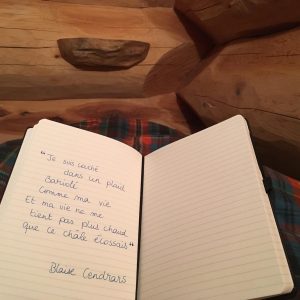 "Je suis couché
dans un plaid
Bariolé
Comme ma vie
Et ma vie ne me
tient pas plus chaud
que ce châle écossais"
Blaise Cendrars